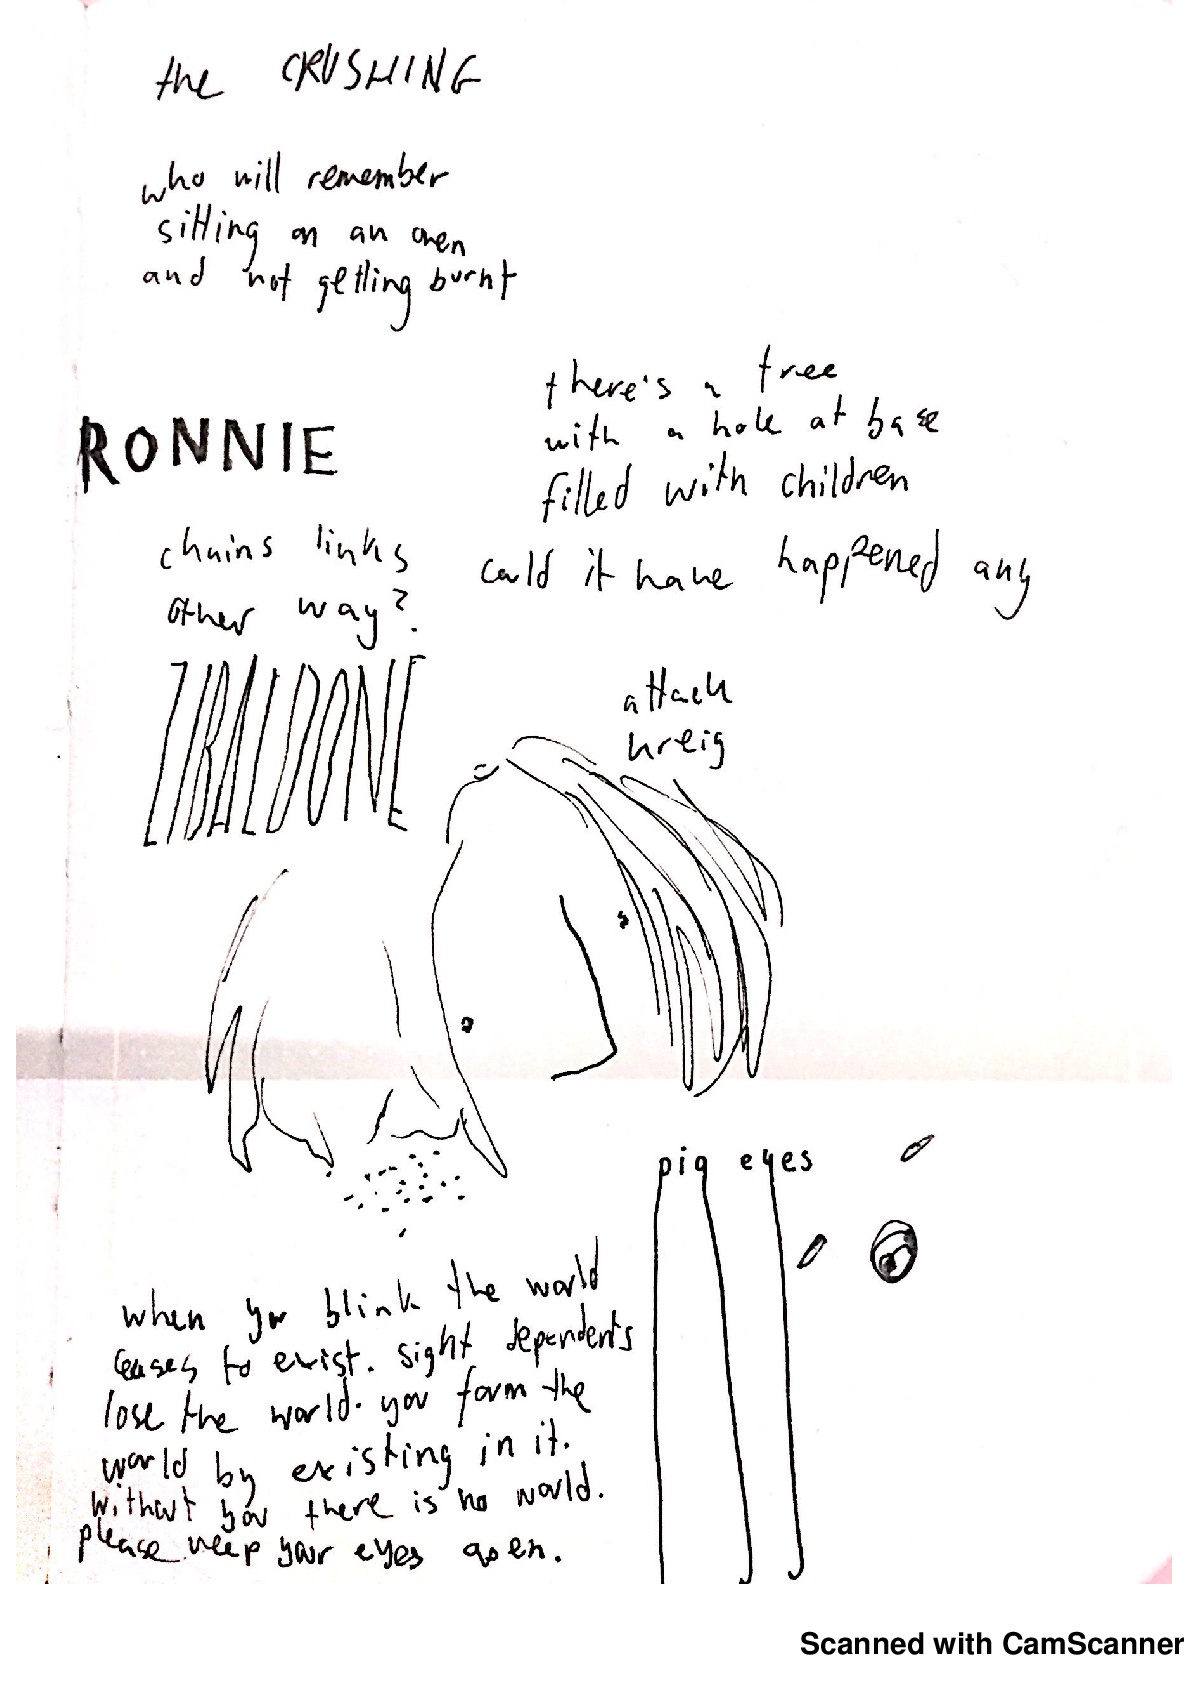 the CRUSHING
who will remember
sitting on an oven
and not getting burnt
there's a tree
with a hole at base
filled with children
RONNIE
could it have happened any
chains links
other way?
ZIBALDONE
attach
pig eyes
when you blink the world
ceases to exist. sight dependents
lose the world. you form the
world by existing in it.
without you there is no world.
please keep your eyes open.
Scanned with CamScanner